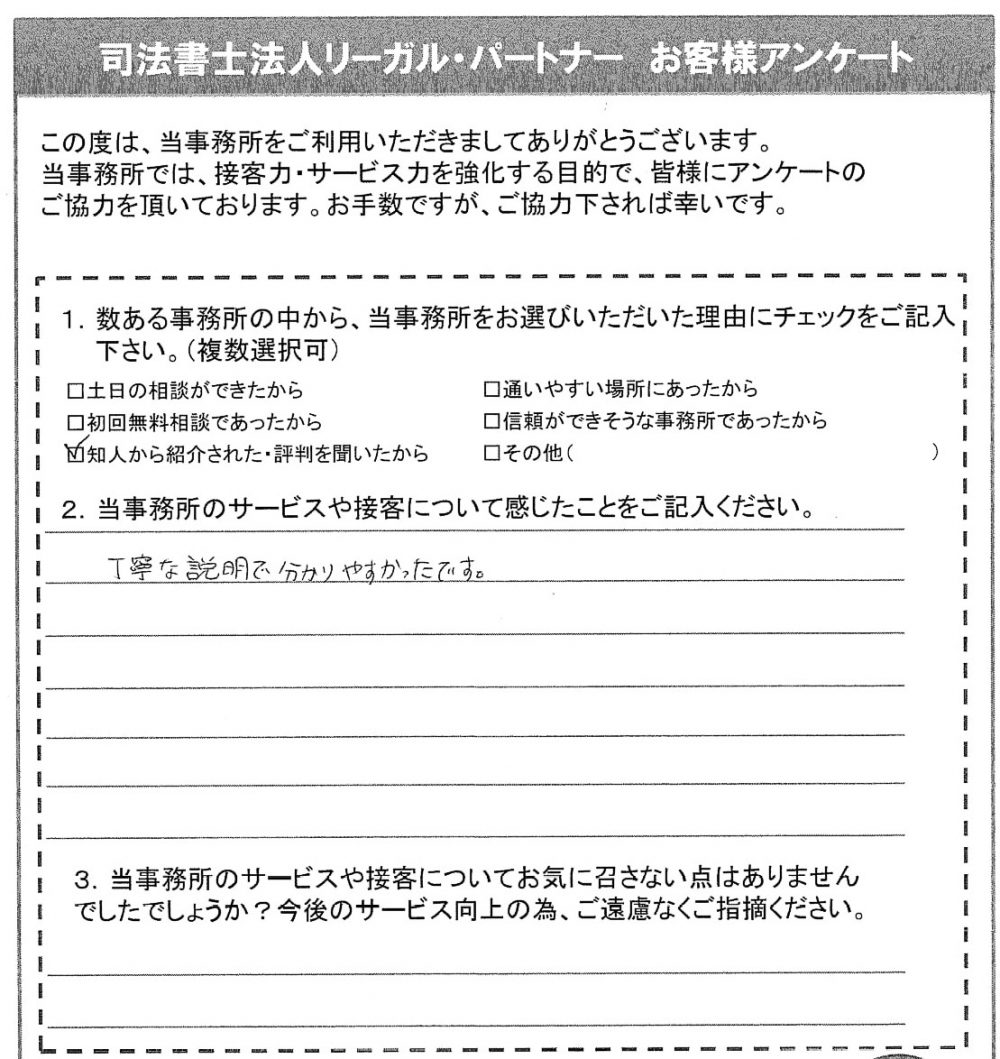 司法書士法人リーガル・パートナー　お客様アンケート
この度は、当事務所をご利用いただきましてありがとうございます。
当事務所では、接客力・サービス力を強化する目的で、皆様にアンケートの
ご協力を頂いております。お手数ですが、ご協力下されば幸いです。
1．数ある事務所の中から、当事務所をお選びいただいた理由にチェックをご記入
下さい。（複数選択可）
□土日の相談ができたから　□通いやすい場所にあったから
□初回無料相談であったから　□信頼ができそうな事務所であったから
☑知人から紹介された・評判を聞いたから　□その他（　）
2．当事務所のサービスや接客について感じたことをご記入ください。
丁寧な説明で分かりやすかったです。
3．当事務所のサービスや接客についてお気に召さない点はありません
でしたでしょうか？今後のサービス向上の為、ご遠慮なくご指摘ください。